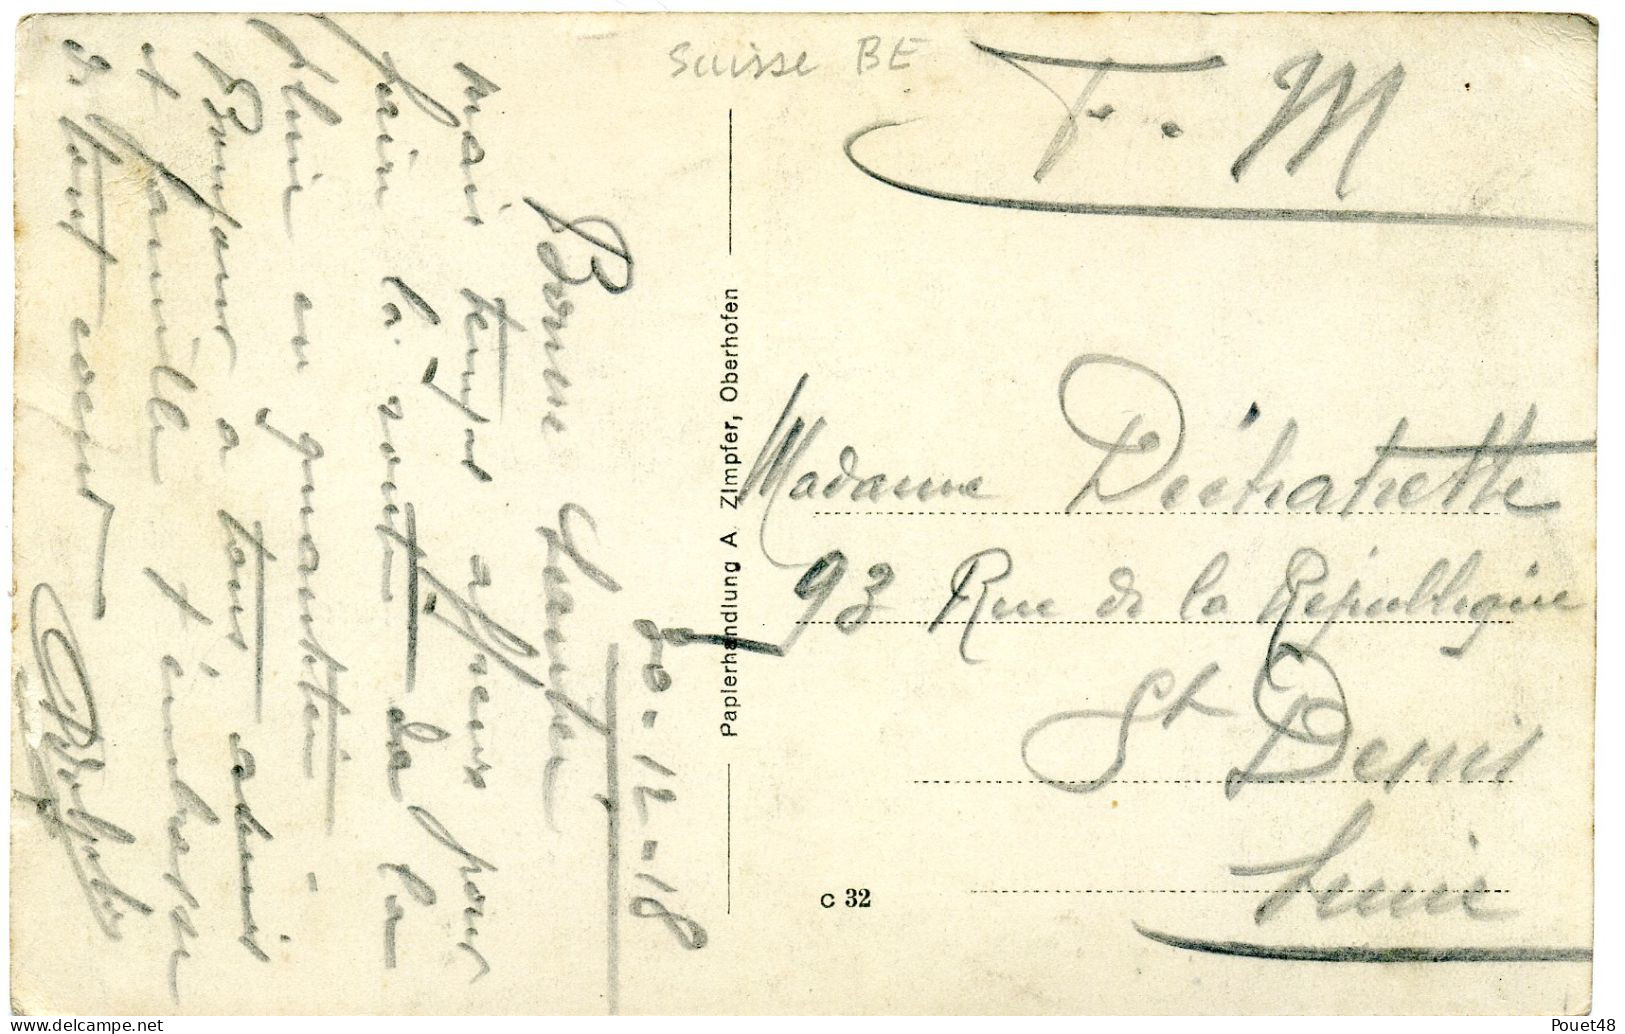 Suisse BE
F. M
30-12-18
Bonne Santée
mais temps affreux pour
faire la route de la
pluie en quantitée.
Bonjour a tous amis
et famille t'embrasse
de tout coeur
Papierhandlung A. Zimpfer, Oberhofen
Madame Déchatrette
93 Rue de la République
St Denis
Seine
C 32
delcampe.net
Pouet48